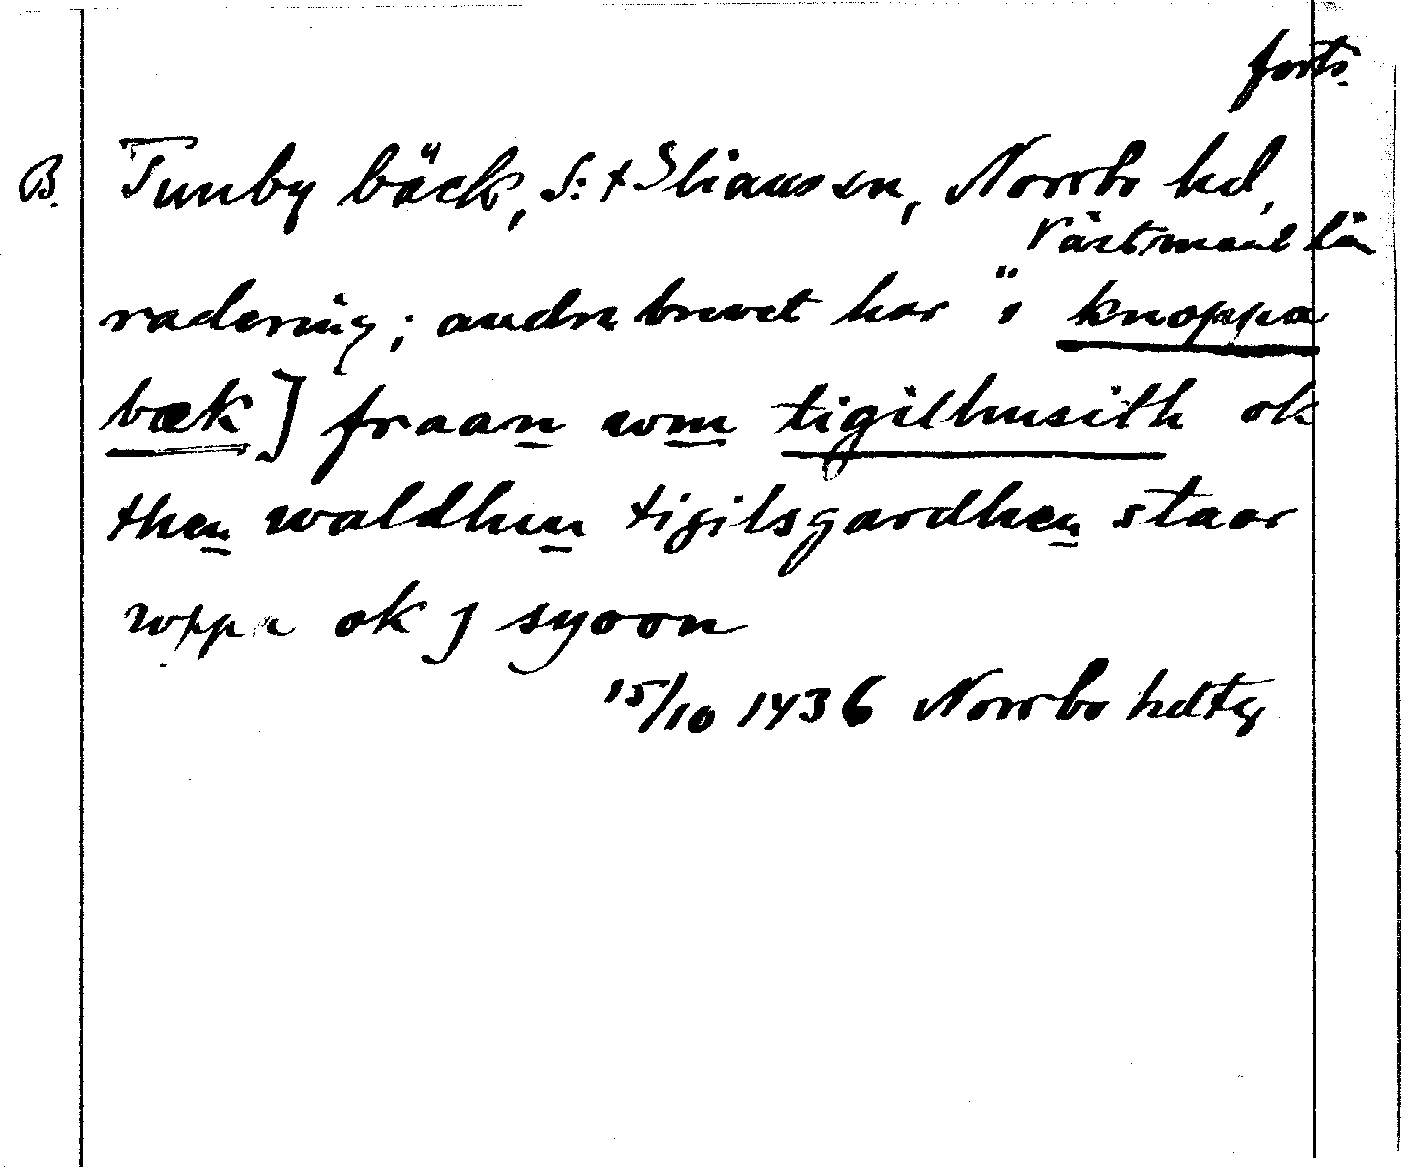 forts.
B. Tunby bäck, S:t Iliansen, Norrbo hd,
Västmanl län
radering; andra brevet har "i knoppa
bæk] fraan wm tigilhusith ok
then waldhen tigilsgardhen staar
wppa ok j syoon
15/10 1436 Norrbo hdtg